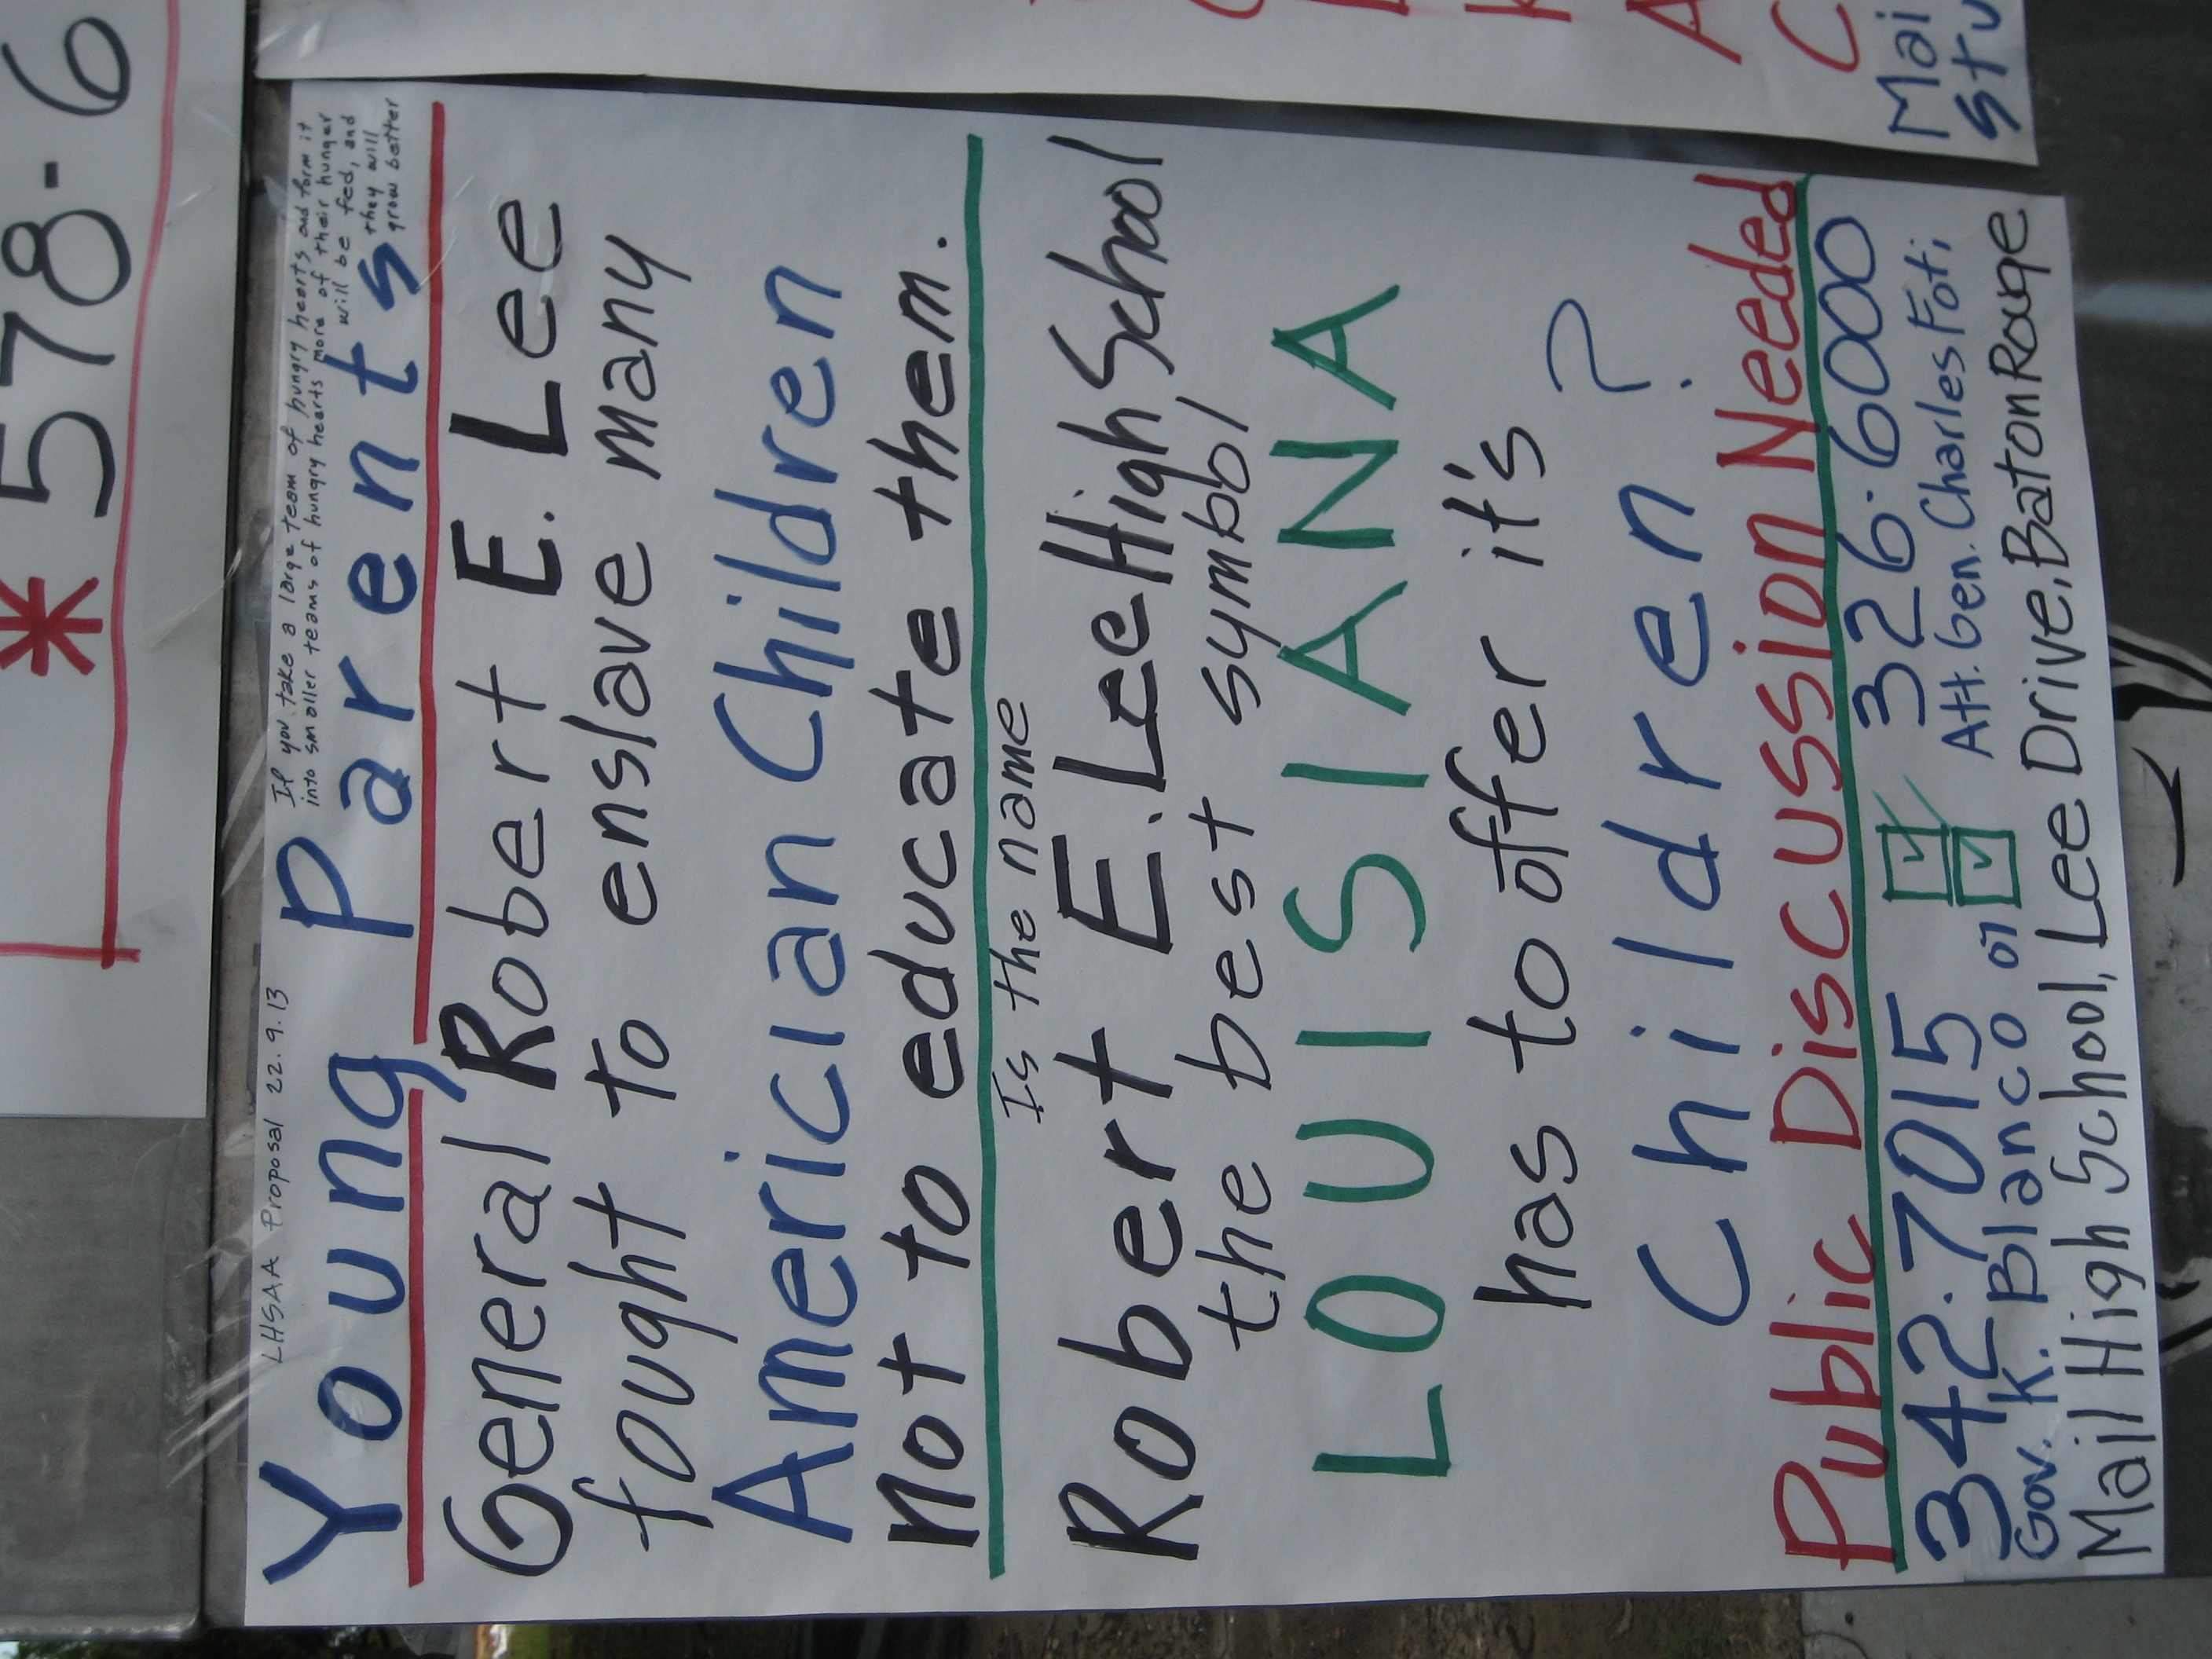 * 578-6
LHSAA Proposal 22.9.13
If you take a large team of hungry hearts and form it
into smaller teams of hungry hearts more of their hunger
will be fed, and
they will
grow better
Young Parents
General Robert E. Lee
fought to enslave many
Americian Children
not to educate them.
Is the name
Robert E. Lee High School
the best symbol
LOUISIANA
has to offer it's
Children ?
Public Discussion Needed
342.7015 326.6000
Gov. K. Blanco or Att. Gen. Charles Foti,
Mail High School, Lee Drive, Baton Rouge
Mai
Stu